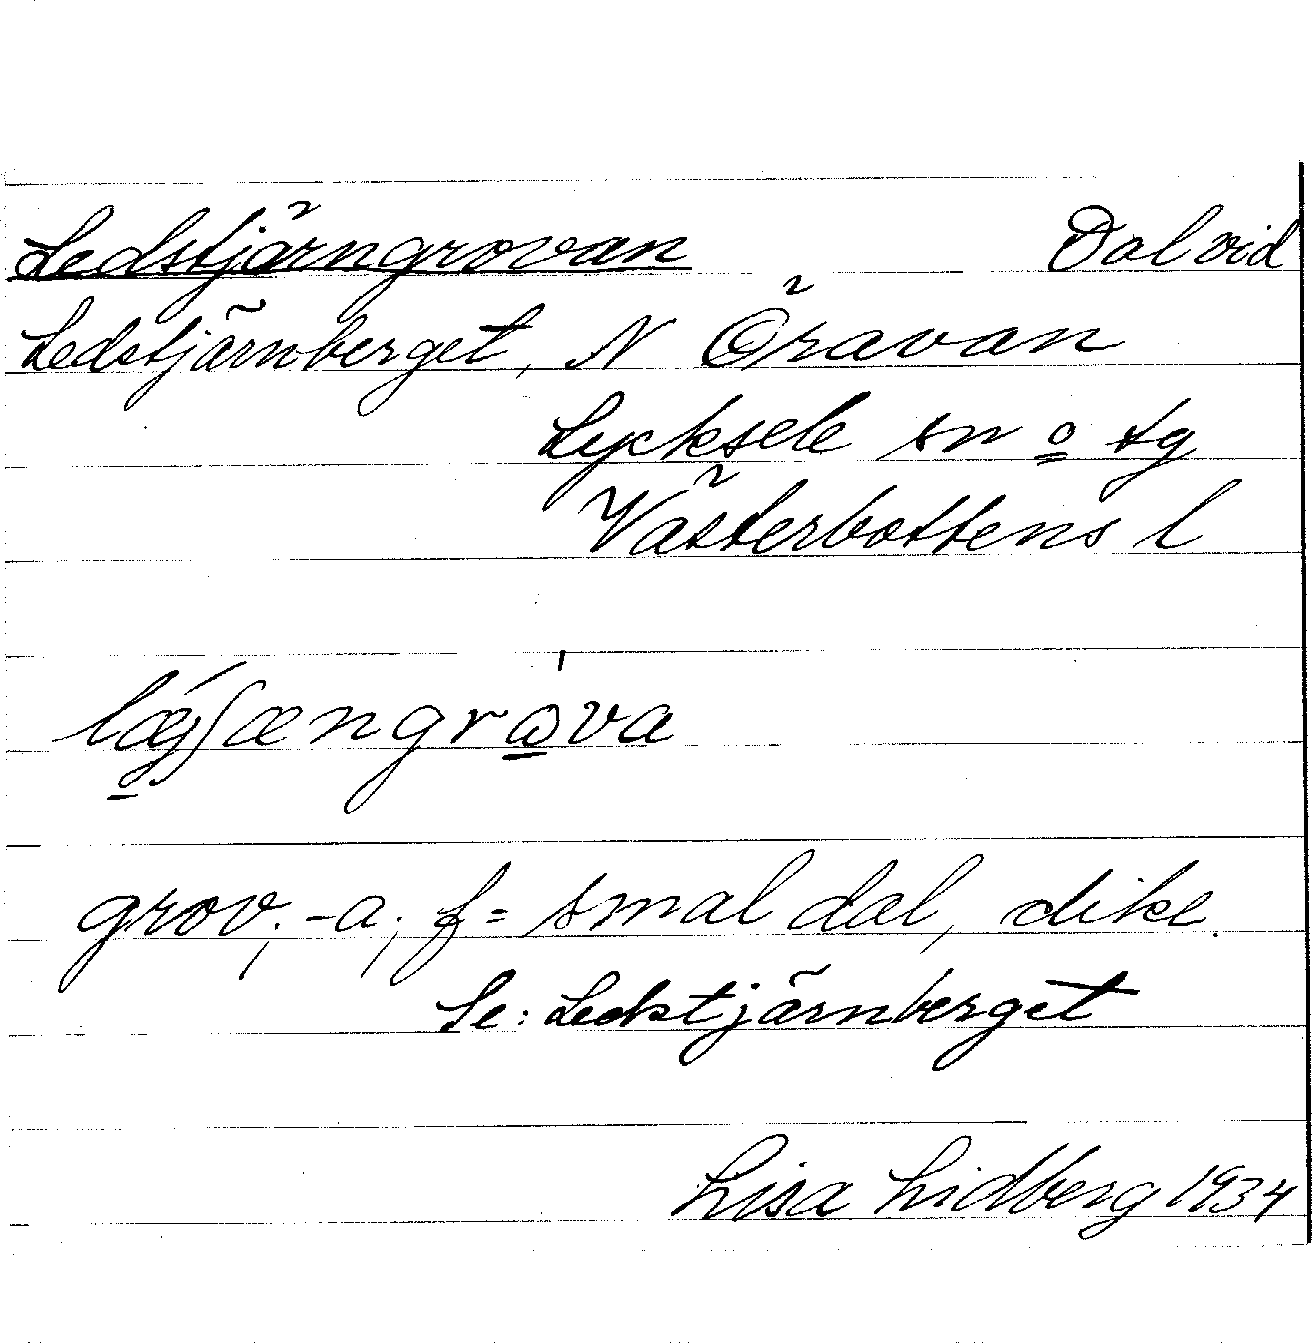 Ledstjärngrovan Dal vid
Ledstjärnberget, N Öravan
Lycksele sn o tg
Västerbottens l
grov, -a, f = smal dal, dike.
Se: Ledstjärnberget
Lisa Lidberg 1934